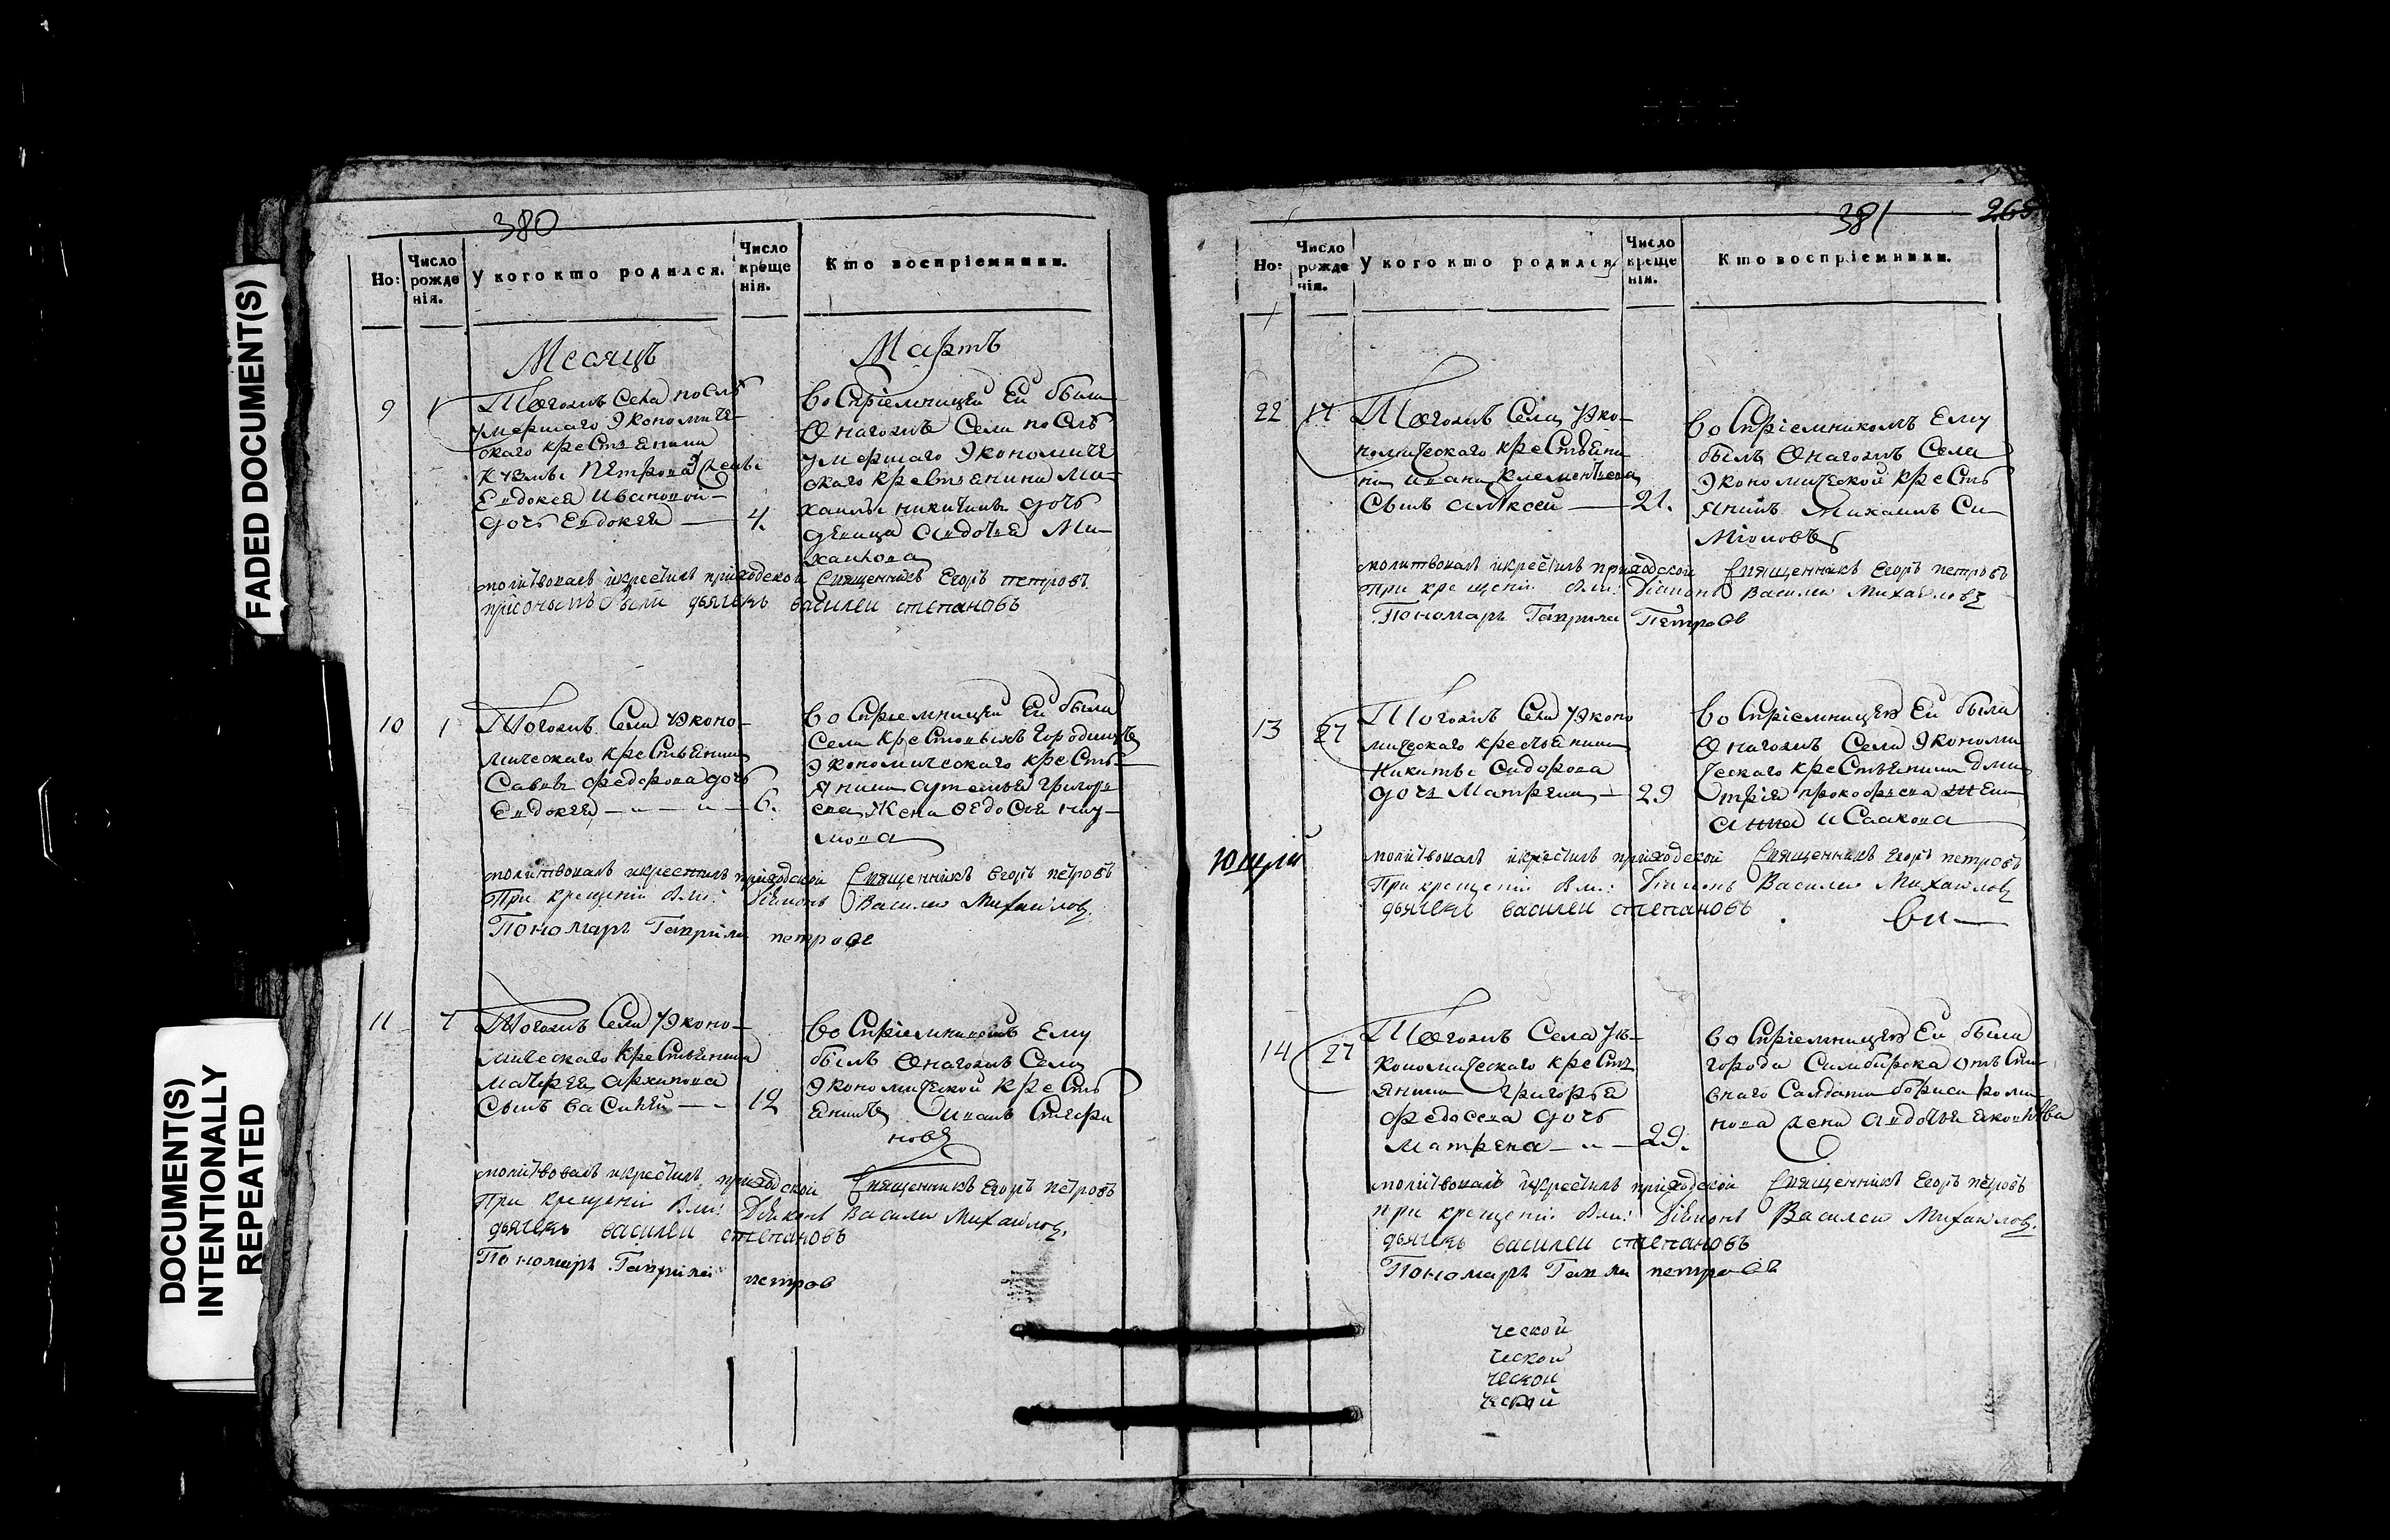 FADED DOCUMENT(S)
DOCUMENT(S)
INTENTIONALLY
REPEATED
380
Но:
Число рожденія.
У кого кто родился.
Число крещенія.
Кто воспріемники.
Месяцъ Мартъ
9 1
Тогожъ Села послѣ
умершаго Экономиче
скаго крестьянина
Кузмы Петрова
Евдокея Ивановой
дочь Евдокея — 4.
воспріемницей Ей была
Онагожъ Села послѣ
умершаго Экономиче
скаго крестьянина Ми-
хаилы никитина дочь
девица Авдотья Ми-
хаилова
молитвовалъ икрестилъ приходской Священникъ Егоръ петровъ
дьячекъ василеи степановъ
10 1
Тогожъ Села Эконо-
мическаго крестьянина
Савы федорова дочь
Евдокея — 6.
воспріемницей Ей была
Села крестовыхъ Городищъ
Экономическаго кресть-
янина артемья Григорь
ева Жена Федосья нау-
мова
молитвовалъ икрестилъ приходской Священникъ Егоръ петровъ
При крещеніи были: Діаконъ Василеи Михаиловъ
Пономарь Гаврила петровъ
11 7
Тогожъ Села Эконо-
мическаго крестьянина
архипова
Сынъ василей — 12
воспріемникомъ Ему
былъ Онагожъ Села
Экономической кресть
янинъ иванъ Стефа
новъ
молитвовалъ икрестилъ приходской Священникъ Егоръ петровъ
При крещеніи были: Діаконъ Василеи Михаиловъ.
дьячекъ василеи степановъ
Пономарь Гаврила петров
381 265
Но:
Число рожденія.
У кого кто родился.
Число крещенія.
Кто воспріемники.
22 17
Тогожъ Села Эко-
номическаго крестьяни
на ивана клементьева
Сынъ алѣксей — 21.
воспріемникомъ Ему
былъ Онагожъ Села
Экономической кресть
янинъ Михаилъ Си-
міоновъ
молитвовалъ икрестилъ приходской Священникъ Егоръ петровъ
При крещеніи были: Діаконъ Василеи Михаиловъ
Пономарь Гаврила Петровъ
13 27
Тогожъ Села Эконо
мическаго крестьянина
Никиты Сидорова
дочь Матрена — 29
воспріемницею Ей была
Онагожъ Села Экономи
ческаго крестьянина дми
трія прокофьева Жена
анна Исаакова
молитвовалъ икрестилъ приходской Священникъ Егоръ петровъ
При крещеніи были: Діаконъ Василеи Михаиловъ
дьячекъ василеи степановъ
14 27
Тогожъ Села Эк-
кономическаго кресть
янина Григорья
федосеева дочь
Матрена — 29.
воспріемницею Ей была
города Симбирска отъ Ста
внаго Салдата бориса рома
нова жена Авдотья яковлева
молитвовалъ икрестилъ приходской Священникъ Егоръ петровъ
при крещеніи были: Діаконъ Василеи Михаиловъ.
дьячекъ василеи степановъ
Пономарь Гаврила петровъ
ческой
ческой
ческой
ческой